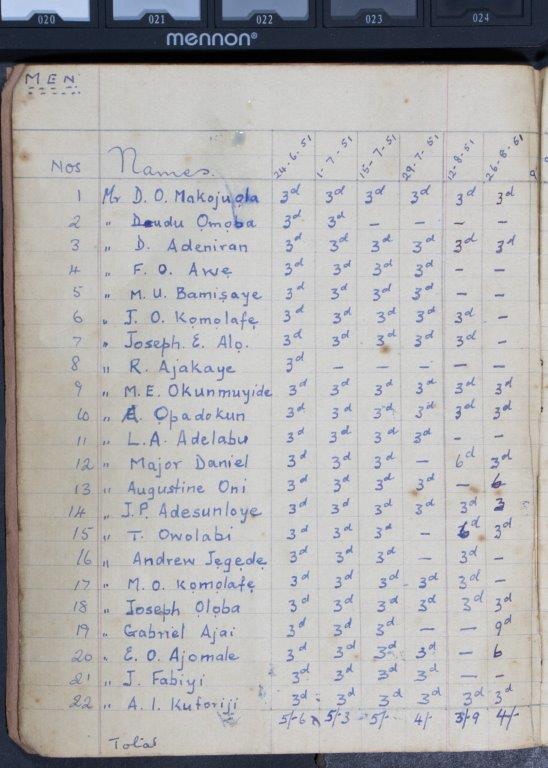 020 021 022 023 024
mennon®
MEN
Nos Names. 24-6-51 1-7-51 15-7-51 29-7-51 12-8-51 26-8-51
1 Mr D. O. Makojuọla 3d 3d 3d 3d 3d 3d
2 " Daudu Omọba 3d 3d – – – –
3 " D. Adeniran 3d 3d 3d 3d 3d 3d
4 " F. O. Awẹ 3d 3d 3d 3d – –
5 " M. U. Bamiṣaye 3d 3d 3d 3d – –
6 " J. O. Kọmọlafẹ 3d 3d 3d 3d 3d –
7 " Joseph. E. Alọ. 3d 3d 3d 3d 3d –
8 " R. Ajakaye 3d – – – – –
9 " M. E. Okunmuyide 3d 3d 3d 3d 3d 3d
10 " E. Ọpadokun 3d 3d 3d 3d 3d 3d
11 " L. A. Adelabu 3d 3d 3d 3d – –
12 " Major Daniel 3d 3d 3d – 6d 3d
13 " Augustine Oni 3d 3d 3d 3d – 6
14 " J. P. Adesunloye 3d 3d 3d 3d 3d 3
15 " T. Owolabi 3d 3d 3d – 6d 3d
16 " Andrew Jẹgẹdẹ 3d 3d 3d – 3d –
17 " M. O. Kọmọlafẹ 3d 3d 3d 3d 3d –
18 " Joseph Olọba 3d 3d 3d 3d 3d 3d
19 " Gabriel Ajai 3d 3d 3d – – 9d
20 " E. O. Ajomale 3d 3d 3d 3d – 6
21 " J. Fabiyi 3d 3d 3d 3d – –
22 " A. I. Kuforiji 3d 3d 3d 3d 3d 3d
5/-6 5/-3 5/- 4/- 3/-9 4/-
Total